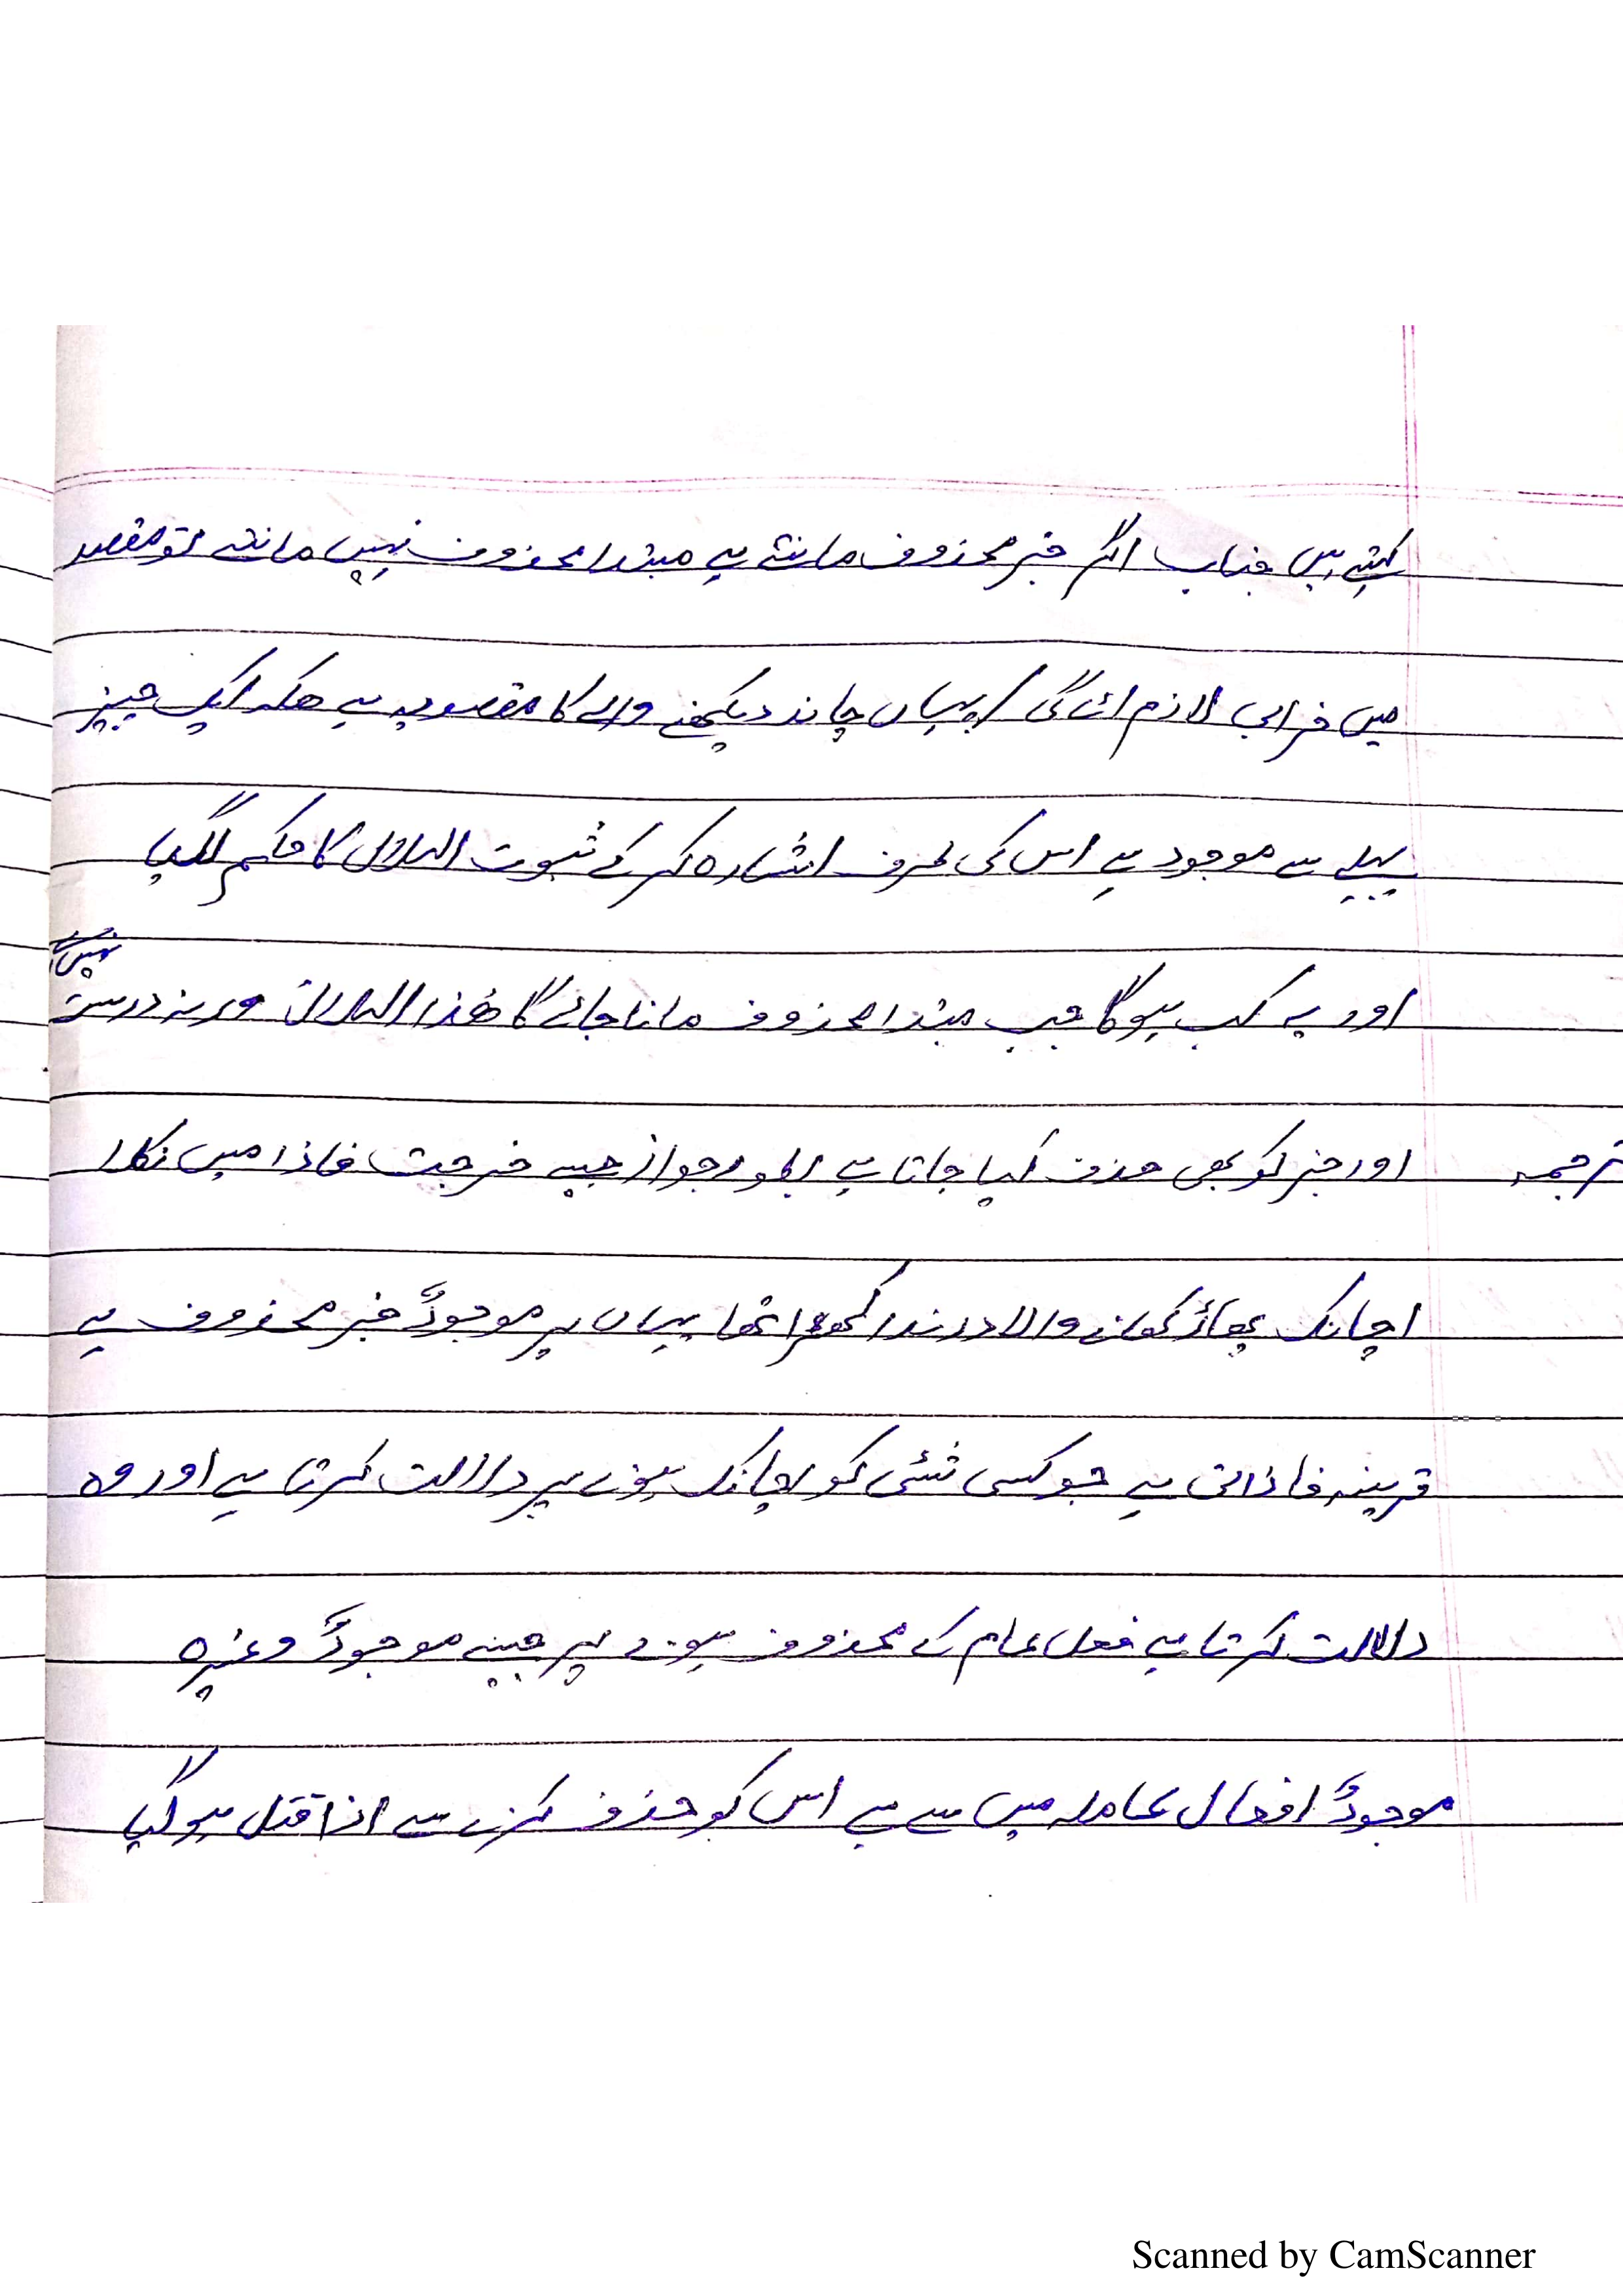 کہتے ہیں جناب اگر خبر محذوف مانتے ہے مبتدا محذوف نہیں مانتے تو مقصد
میں خرابی لازم ائے گی / یہاں چاند دیکھنے والے کا مقصد یہ ہے ھکہ ایک چیز
پہلے سے موجود ہے اس کی طرف اشارہ کر کے ثبوت الہلال کا حکم لگایا
اور یہ کب ہوگا جب مبتدا محذوف مانا جائے گا ھٰذا الہلال ورنہ درست نہیں
ترجمہ اور خبر کو بھی حذف کیا جاتا ہے بطور جواز جیسے خرجت فاذا میں نکلا
اچانک پھاڑ کھانے والا درندا کھڑا تھا یہاں پر موجودٌ خبر محذوف ہے
قرینہ فاذا ہے جو کسی شئی کو اچانک ہونے پر دلالت کرتا ہے اور وہ
دلالت کرتا ہے فعل عام کے محذوف ہونے پر جیسے موجودٌ وغیرہ
موجودٌ افعال عاملہ میں سے ہے اس کو حذف کرنے سے اذا قتل ہو گیا
Scanned by CamScanner